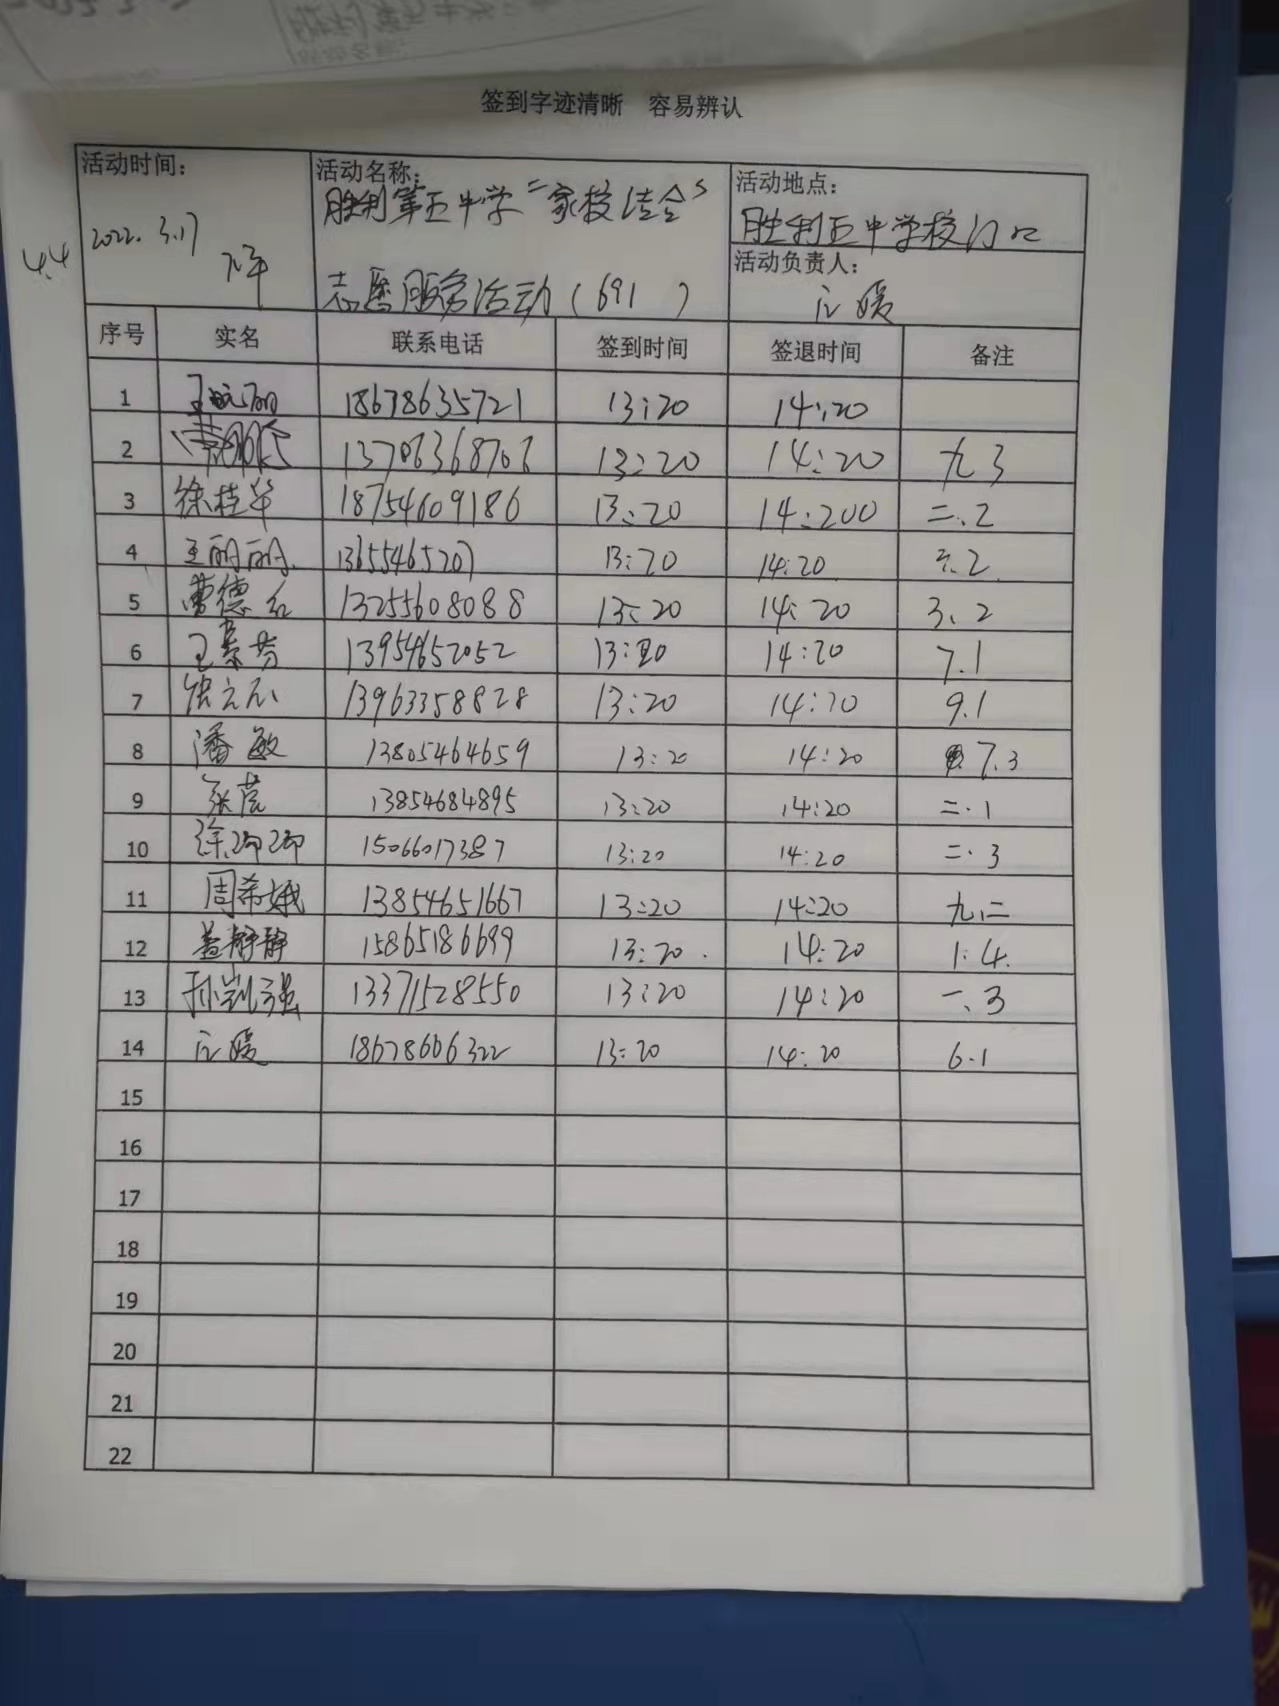 签到字迹清晰 容易辨认
活动时间:
2022. 3.17
4.4
活动名称:
胜利第五中学"家校结合"
志愿服务活动(691)
活动地点:
胜利五中学校门口
活动负责人:
媛
序号 实名 联系电话 签到时间 签退时间 备注
1 18678635721 13:20 14:20
2 13706368706 13:20 14:20 九3
3 徐桂华 18754609186 13:20 14:200 二.2
4 王丽丽 13655465207 13:20 14:20 .2
5 曹德 13255608088 13:20 14:20 3、2
6 王素芳 13954652052 13:20 14:20 7.1
7 张立 13963358828 13:20 14:20 9.1
8 潘敏 13805464659 13:20 14:20 7.3
9 张 13854684895 13:20 14:20 二.1
10 徐 15066017387 13:20 14:20 二.3
11 周希娥 13854651667 13:20 14:20 九.二
12 盖静静 15865186699 13:20. 14:20 1.4.
13 孙凯强 13371528550 13:20 14:20 一、3
14 媛 18678606322 13:20 14:20 6.1
15
16
17
18
19
20
21
22